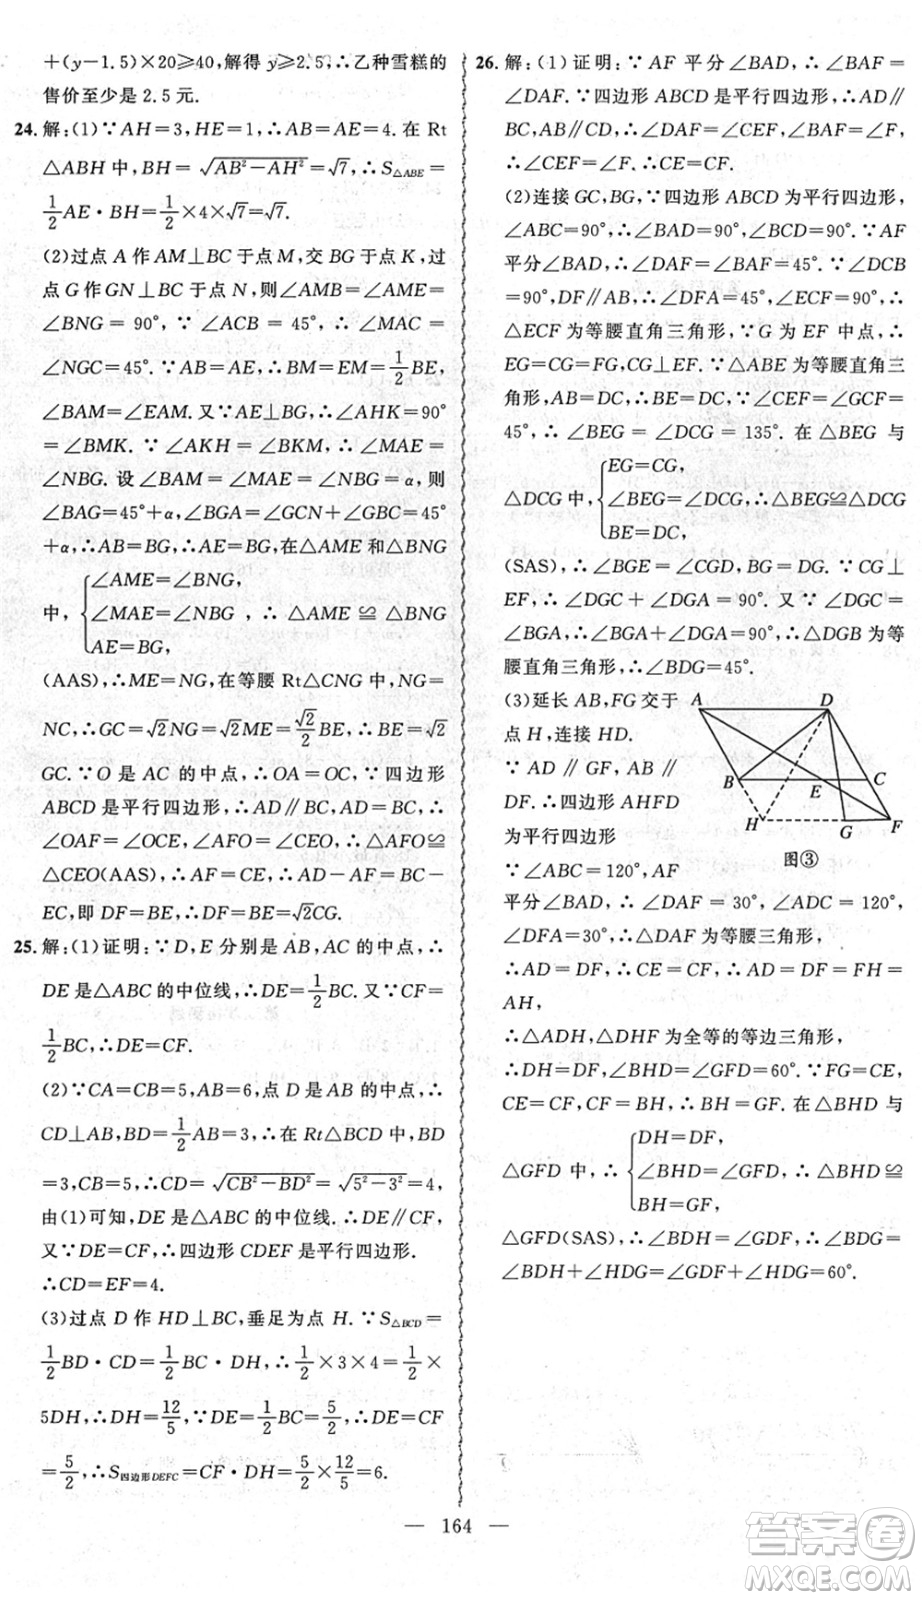 +(y-1.5)×20≥40,解得 y≥2.5,∴乙种雪糕的
售价至少是 2.5 元.
24. 解:(1)∵AH=3,HE=1,∴AB=AE=4. 在 Rt
△ABH 中,BH=√(AB²-AH²)=√7,∴S△ABE=
1/2 AE·BH=1/2×4×√7=2√7.
(2)过点 A 作 AM⊥BC 于点 M,交 BG 于点 K,过
点 G 作 GN⊥BC 于点 N,则∠AMB=∠AME=
∠BNG = 90°, ∵ ∠ACB = 45°, ∴ ∠MAC =
∠NGC=45°. ∵AB=AE,∴BM=EM=1/2 BE,
∠BAM=∠EAM. 又∵AE⊥BG,∴∠AHK=90°
=∠BMK. ∵∠AKH=∠BKM,∴∠MAE=
∠NBG. 设∠BAM=∠MAE=∠NBG=α,则
∠BAG=45°+α,∠BGA=∠GCN+∠GBC=45°
+α,∴AB=BG,∴AE=BG,在△AME 和△BNG
中, { ∠AME=∠BNG,
∠MAE=∠NBG , ∴ △AME ≌ △BNG
AE=BG,
(AAS),∴ME=NG,在等腰 Rt△CNG 中,NG=
NC,∴GC=√2NG=√2ME=√2/2 BE,∴BE=√2
GC. ∵O 是 AC 的中点,∴OA=OC,∵四边形
ABCD 是平行四边形,∴AD∥BC,AD=BC,∴
∠OAF=∠OCE,∠AFO=∠CEO,∴△AFO≌
△CEO(AAS),∴AF=CE,∴AD-AF=BC-
EC,即 DF=BE,∴DF=BE=√2CG.
25. 解:(1)证明:∵D,E 分别是 AB,AC 的中点,∴
DE 是△ABC 的中位线,∴DE=1/2 BC. 又∵CF=
1/2 BC,∴DE=CF.
(2)∵CA=CB=5,AB=6,点 D 是 AB 的中点,∴
CD⊥AB,BD=1/2 AB=3,∴在 Rt△BCD 中,BD
=3,CB=5,∴CD=√(CB²-BD²)=√(5²-3²)=4,
由(1)可知,DE 是△ABC 的中位线. ∴DE∥CF,
又∵DE=CF,∴四边形 CDEF 是平行四边形.
∴CD=EF=4.
(3)过点 D 作 HD⊥BC,垂足为点 H. ∵S△BCD=
1/2 BD·CD=1/2 BC·DH,∴1/2×3×4=1/2×
5DH,∴DH=12/5,∵DE=1/2 BC=5/2,∴DE=CF
=5/2,∴S四边形DEFC=CF·DH=5/2×12/5=6.
26. 解:(1)证明:∵AF 平分∠BAD,∴∠BAF=
∠DAF. ∵四边形 ABCD 是平行四边形,∴AD∥
BC,AB∥CD,∴∠DAF=∠CEF,∠BAF=∠F,
∴∠CEF=∠F,∴CE=CF.
(2)连接 GC,BG,∵四边形 ABCD 为平行四边形,
∠ABC=90°,∴∠BAD=90°,∠BCD=90°. ∵AF
平分∠BAD,∴∠DAF=∠BAF=45°. ∵∠DCB
=90°,DF∥AB,∴∠DFA=45°,∠ECF=90°. ∴
△ECF 为等腰直角三角形,∵G 为 EF 中点,∴
EG=CG=FG,CG⊥EF. ∵△ABE 为等腰直角三
角形,AB=DC,∴BE=DC,∵∠CEF=∠GCF=
45°,∴∠BEG=∠DCG = 135°. 在 △BEG 与
△DCG 中, { EG=CG,
∠BEG=∠DCG,∴△BEG≌△DCG
BE=DC,
(SAS),∴∠BGE=∠CGD,BG=DG. ∵CG⊥
EF, ∴∠DGC+∠DGA=90°. 又∵∠DGC=
∠BGA,∴∠BGA+∠DGA=90°,∴△DGB 为等
腰直角三角形,∴∠BDG=45°.
(3)延长 AB,FG 交于
点 H,连接 HD.
∵ AD ∥ GF, AB ∥
DF. ∴四边形 AHFD
为平行四边形
∵∠ABC=120°,AF
平分∠BAD,∴∠DAF = 30°, ∠ADC = 120°,
∠DFA=30°,∴△DAF 为等腰三角形,
∴AD=DF,∴CE=CF,∴AD=DF=FH=
AH,
∴△ADH,△DHF 为全等的等边三角形,
∴DH=DF,∠BHD=∠GFD=60°. ∵FG=CE,
CE=CF,CF=BH,∴BH=GF. 在△BHD 与
△GFD 中,∴ { DH=DF,
∠BHD=∠GFD,∴△BHD≌
BH=GF,
△GFD(SAS),∴∠BDH=∠GDF,∴∠BDG=
∠BDH+∠HDG=∠GDF+∠HDG=60°.
A
D
B
E
C
H
G
F
图③
— 164 —
答案圈
MXQE.COM